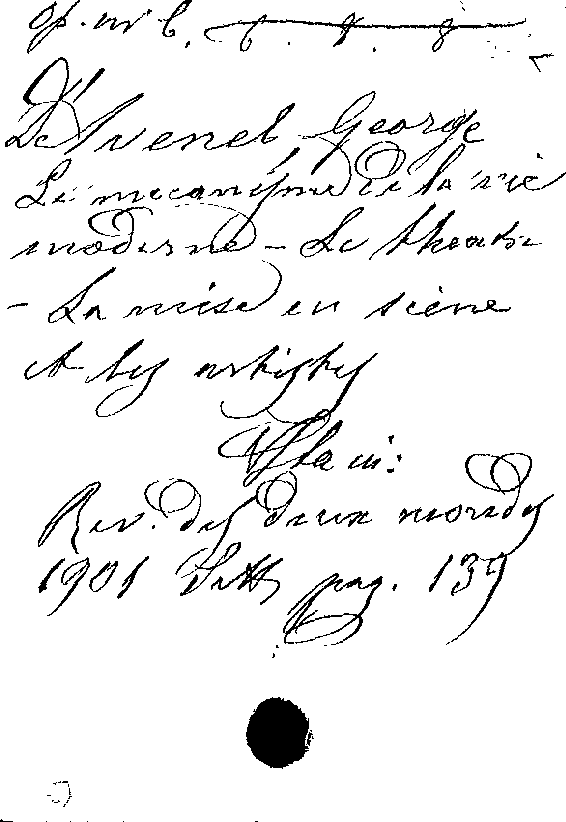 op. nr 6.
D'Avenel George
Le mecanisme de la vie
moderne – Le theatre
– La mise en scène
et les artistes
Sta in:
Rev. des deux mondes
1901 Sett. pag. 139